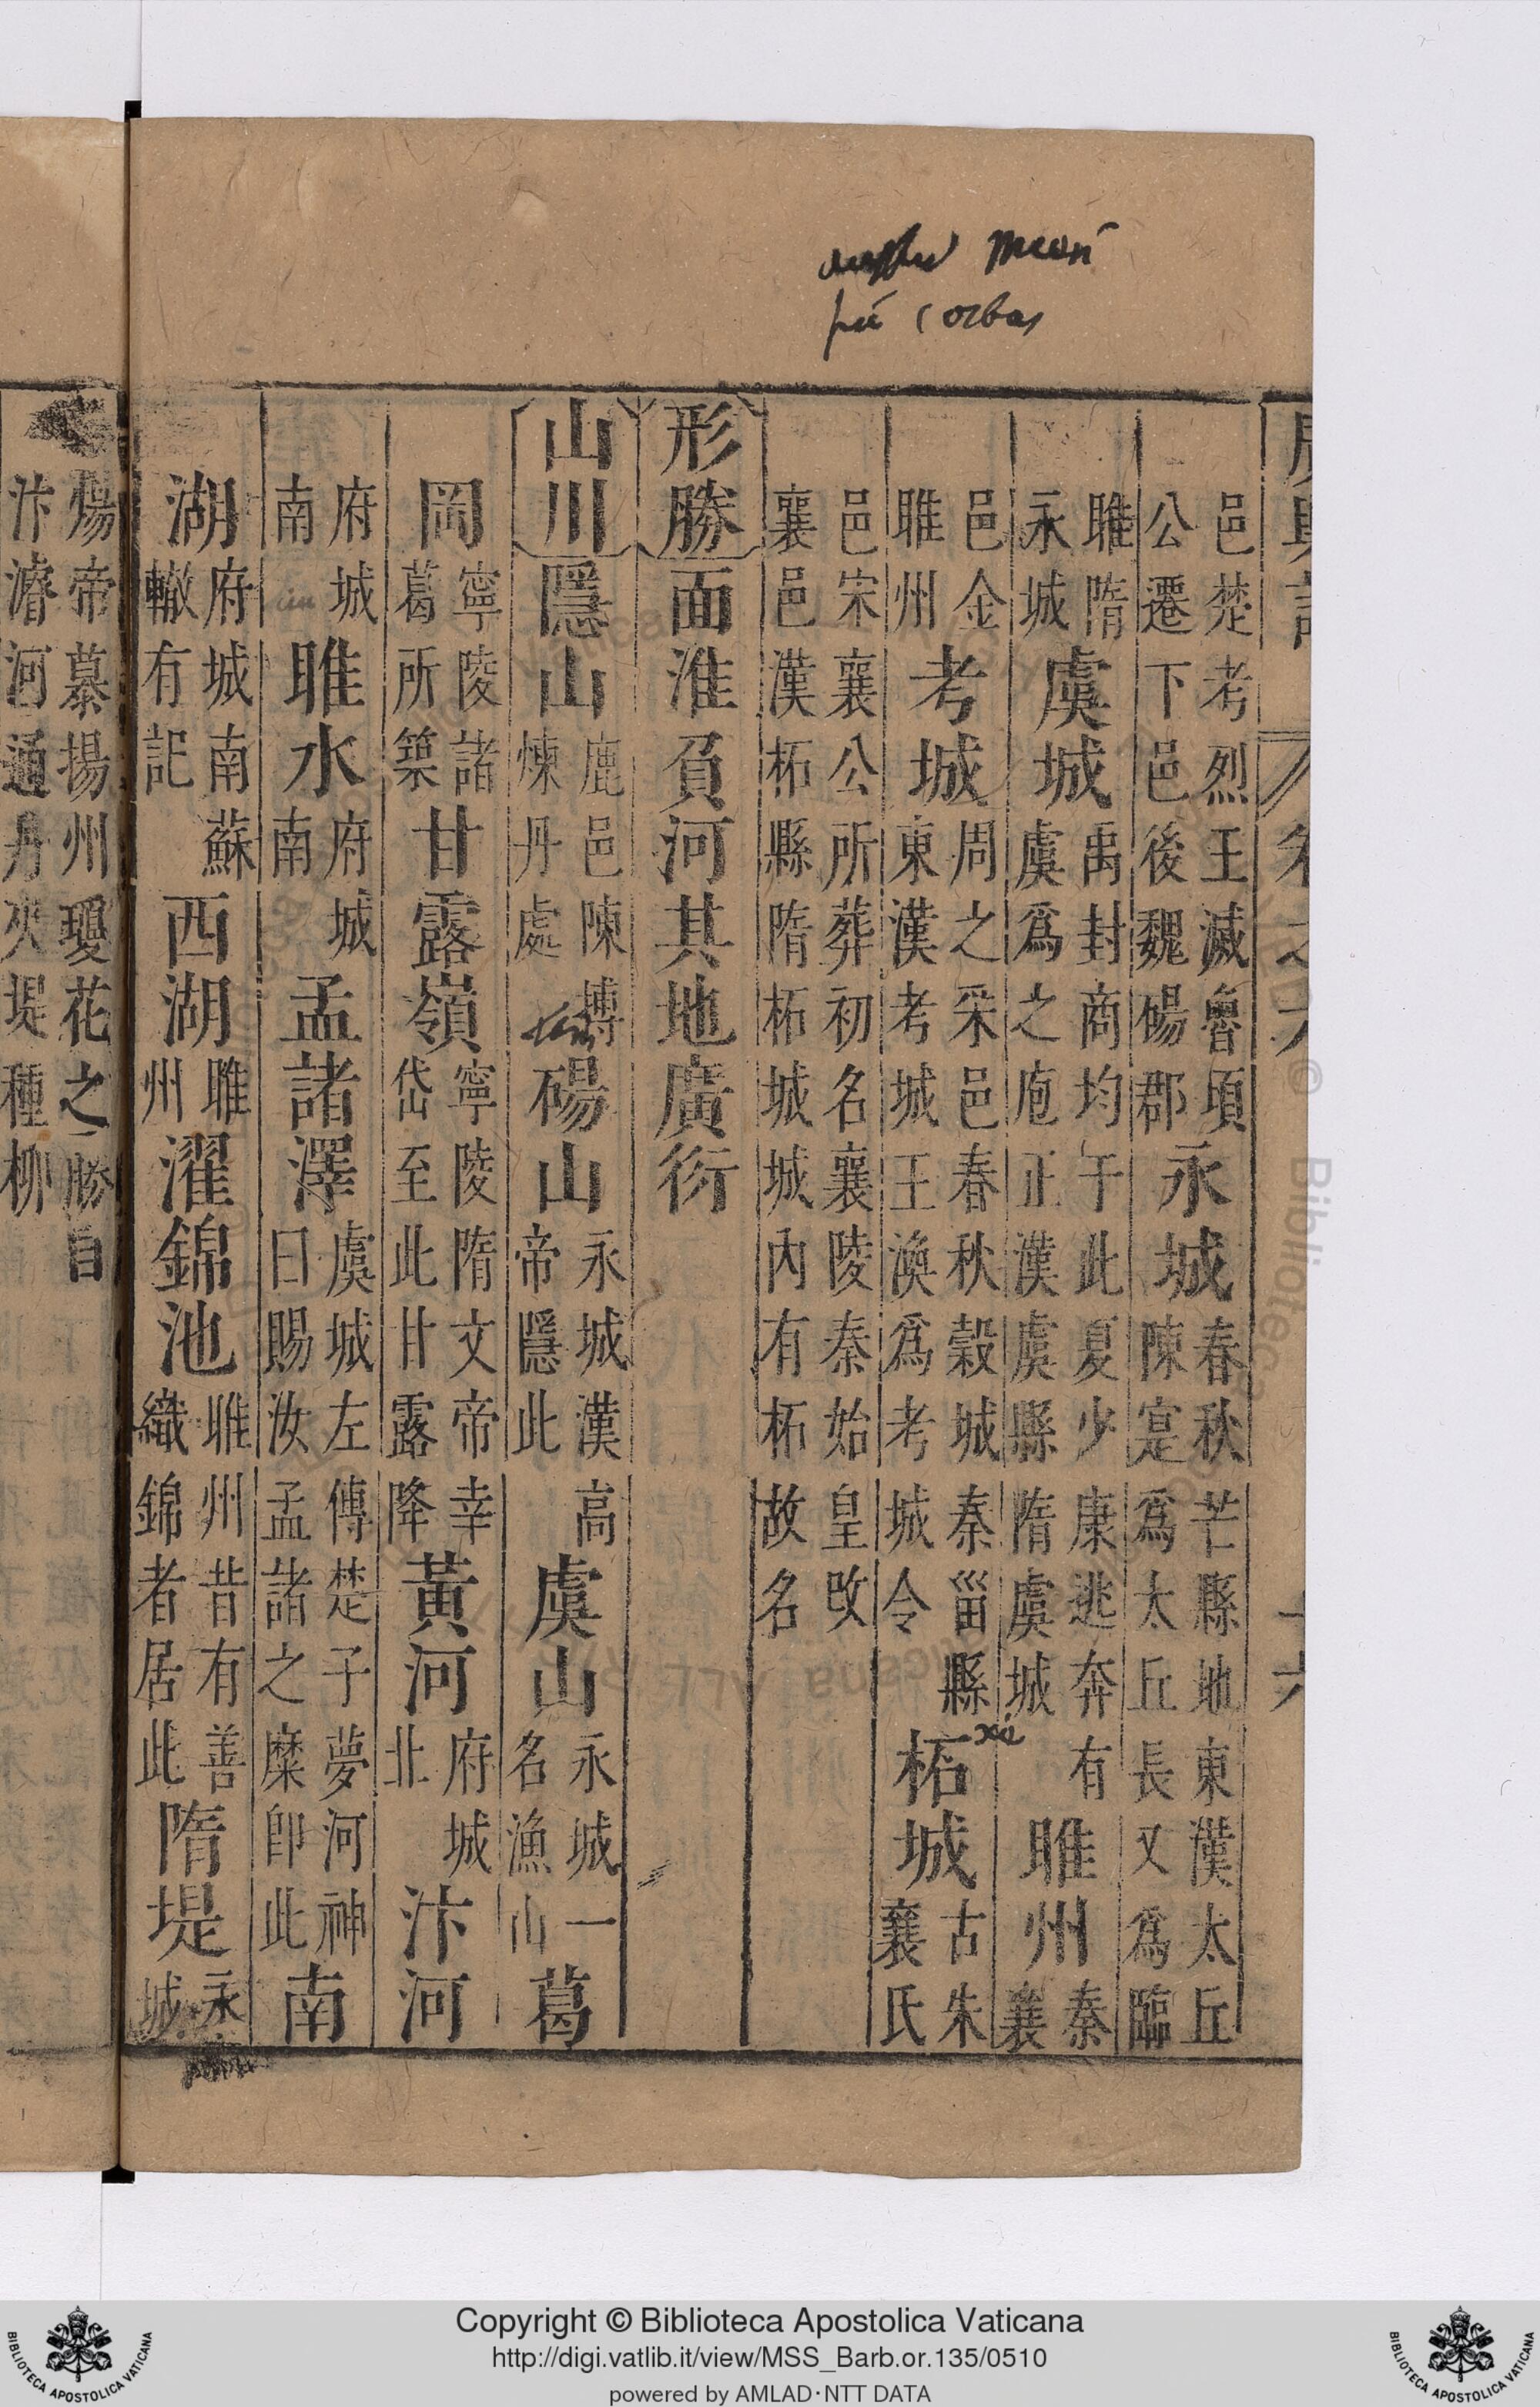 邑楚考烈王滅魯頃公遷下邑後魏碭郡永城春秋芒縣地東漢太丘陳寔爲太丘長又爲臨
睢隋永城虞城禹封商均于此夏少康逃奔有虞爲之庖正漢虞縣隋虞城睢州秦襄
邑金睢州考城周之采邑春秋穀城秦甾縣東漢考城王渙爲考城令柘城古朱襄氏
邑宋襄公所葬初名襄陵秦始皇改襄邑漢柘縣隋柘城城內有柘故名
形勝面淮負河其地廣衍
山川隱山鹿邑陳摶煉丹處碭山永城漢高帝隱此虞山永城一名漁山葛
岡寧陵諸葛所築甘露嶺寧陵隋文帝幸岱至此甘露降黃河府城北汴河
府城南睢水府城南孟諸澤虞城左傳楚子夢河神曰賜汝孟諸之糜卽此南
湖府城南蘇轍有記西湖睢州濯錦池睢州昔有善織錦者居此隋堤永城
煬帝慕揚州瓊花之勝自汴濬河通丹夾堤種柳
Copyright © Biblioteca Apostolica Vaticana
http://digi.vatlib.it/view/MSS_Barb.or.135/0510
powered by AMLAD·NTT DATA
BIBLIOTECA APOSTOLICA VATICANA
BIBLIOTECA APOSTOLICA VATICANA